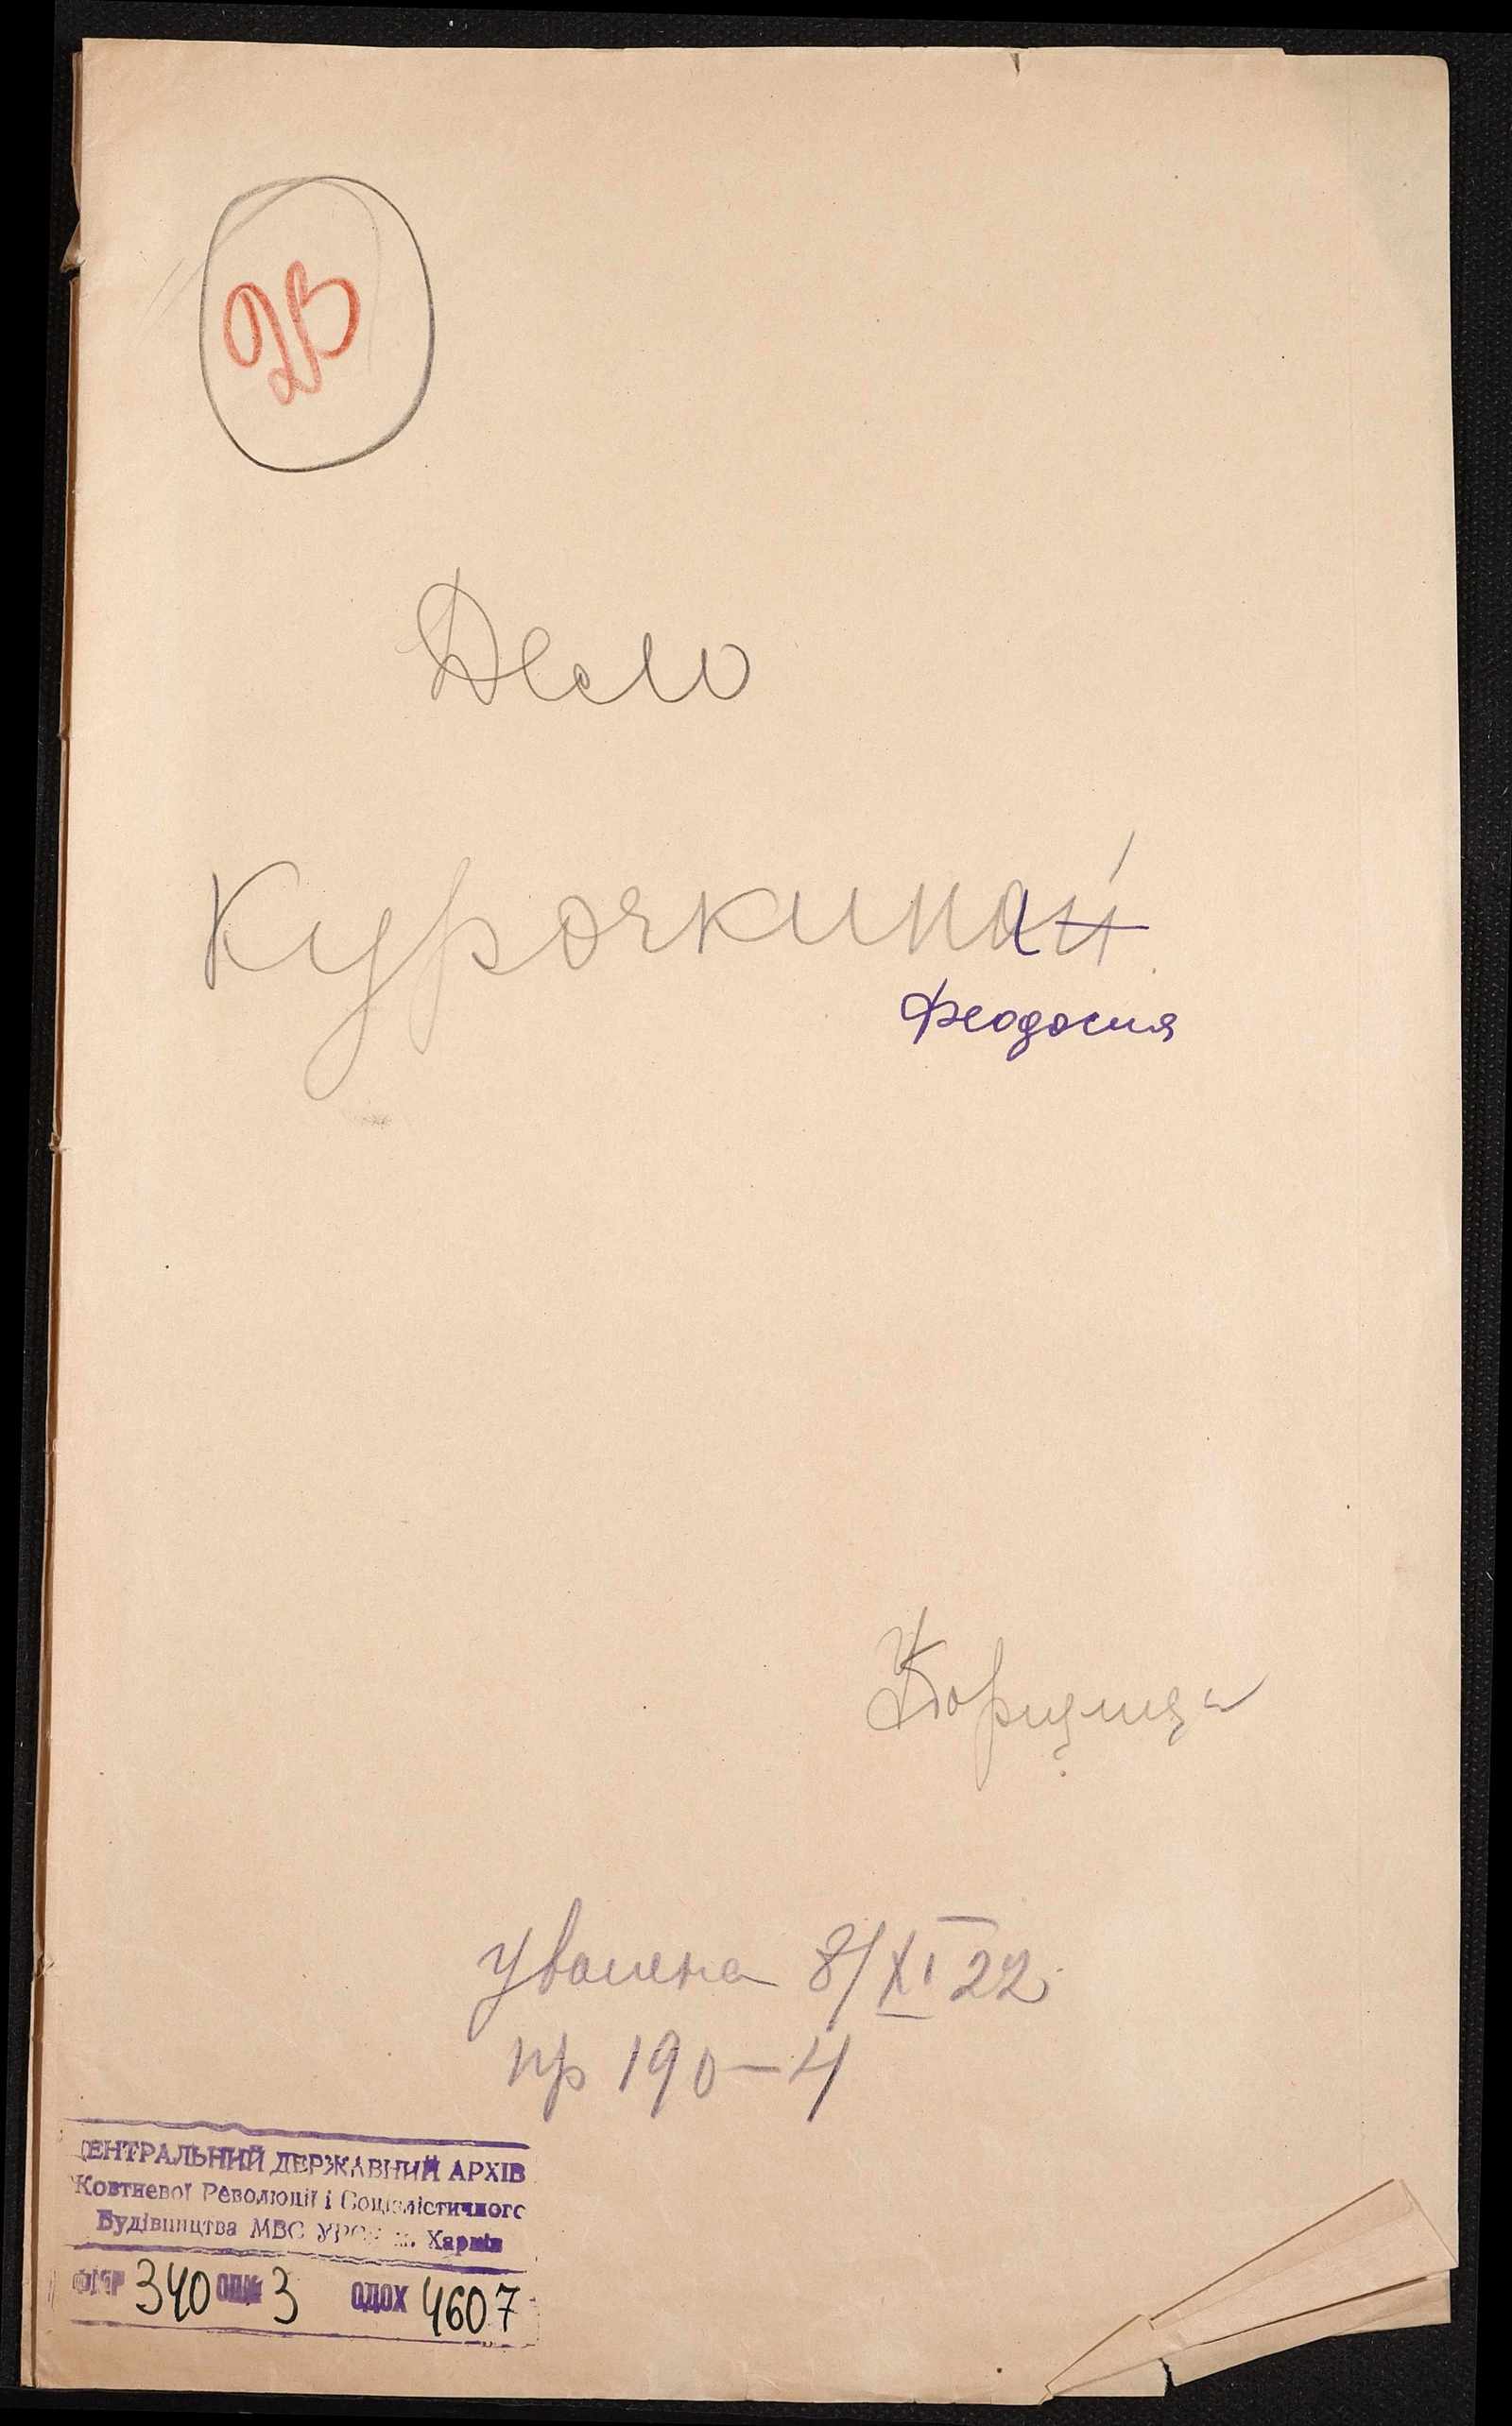 ДВ
Дело
Курочкина
Феодосия
уволена 8/XI 22
пр 190-4
ЦЕНТРАЛЬНИЙ ДЕРЖАВНИЙ АРХІВ
Жовтневої Революції і Соціалістичного
Будівництва МВС УРСР м. Харків
340 3 ОДОХ 4607